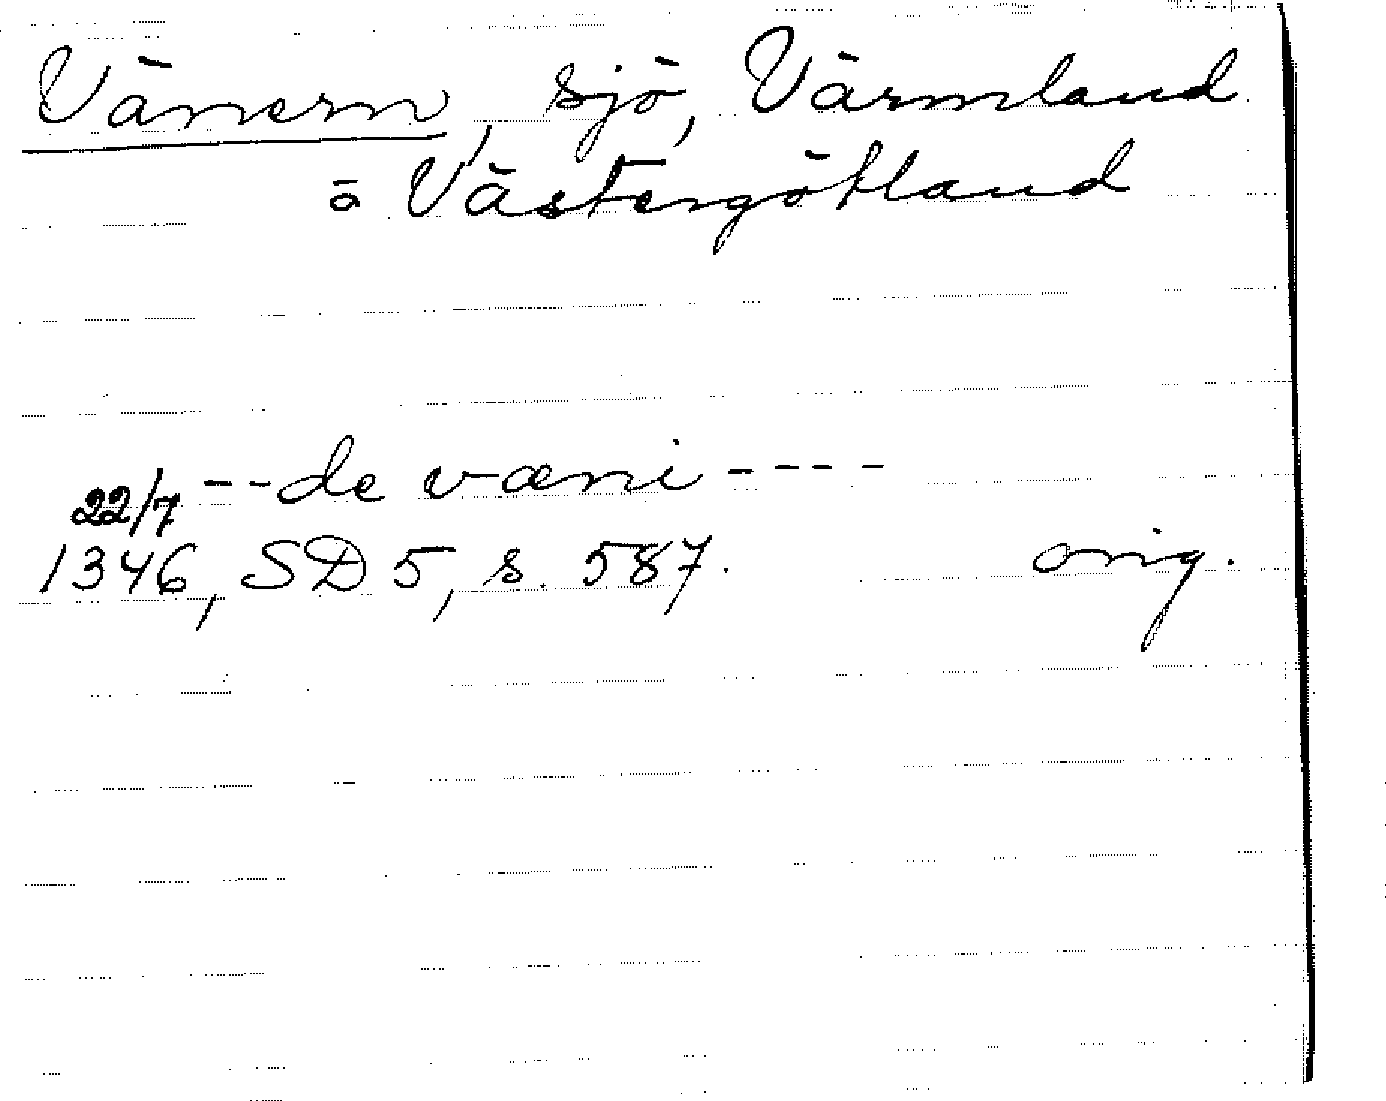 Vänern, sjö, Värmland
o Västergötland
--de væni----
22/7
1346, SD 5, s. 587. orig.